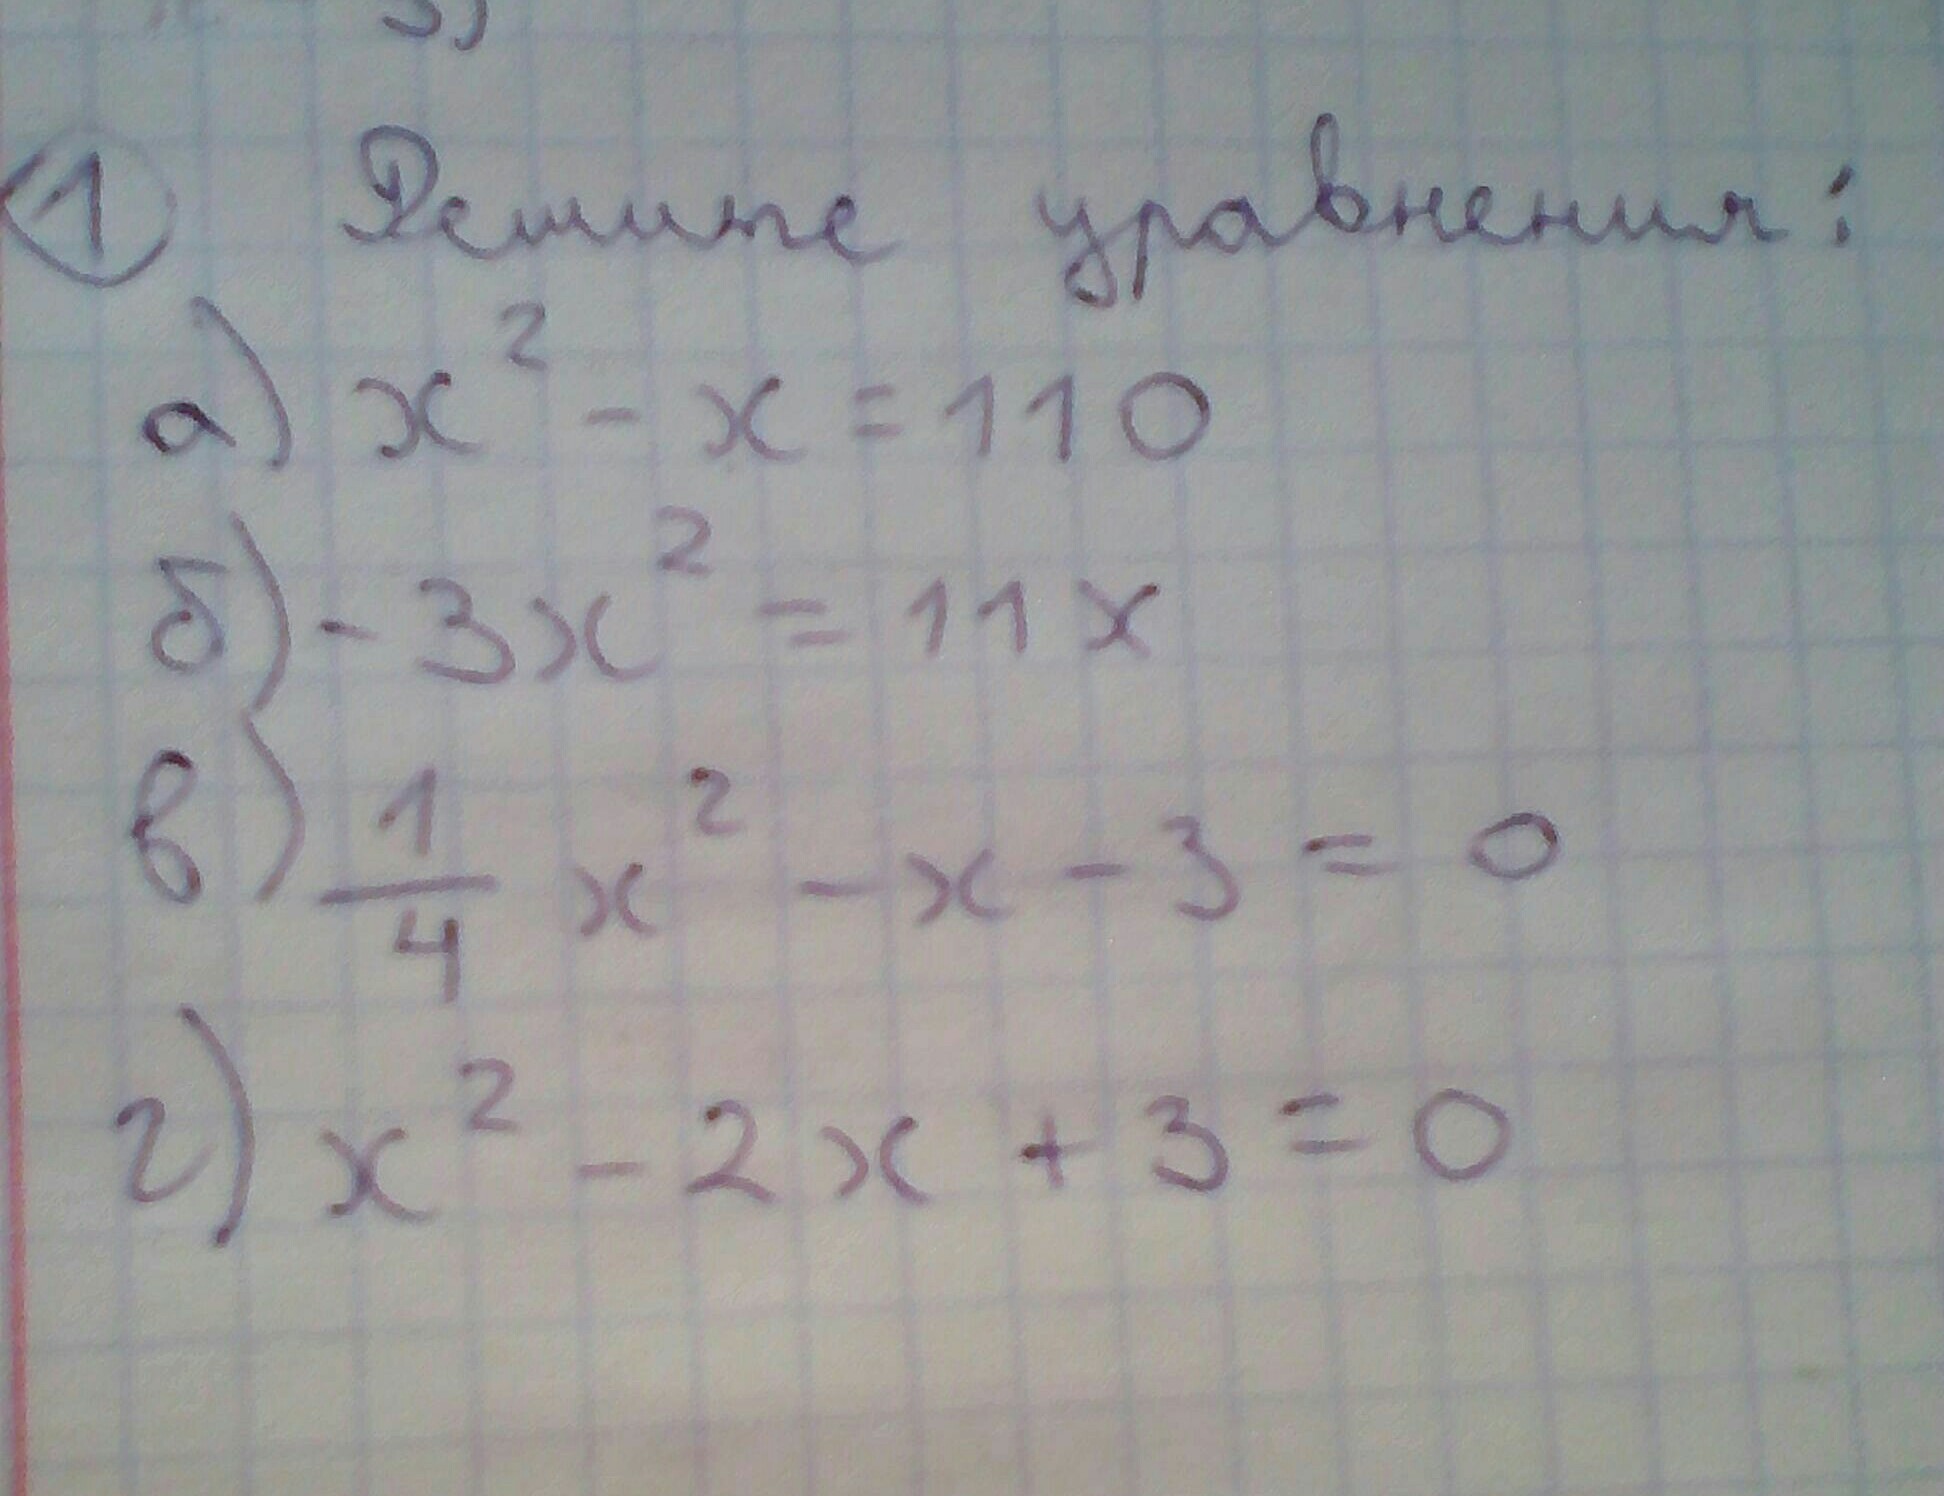 ① Решите уравнения:
а) x² - x = 110
б) - 3x² = 11x
в) 1/4 x² - x - 3 = 0
г) x² - 2x + 3 = 0